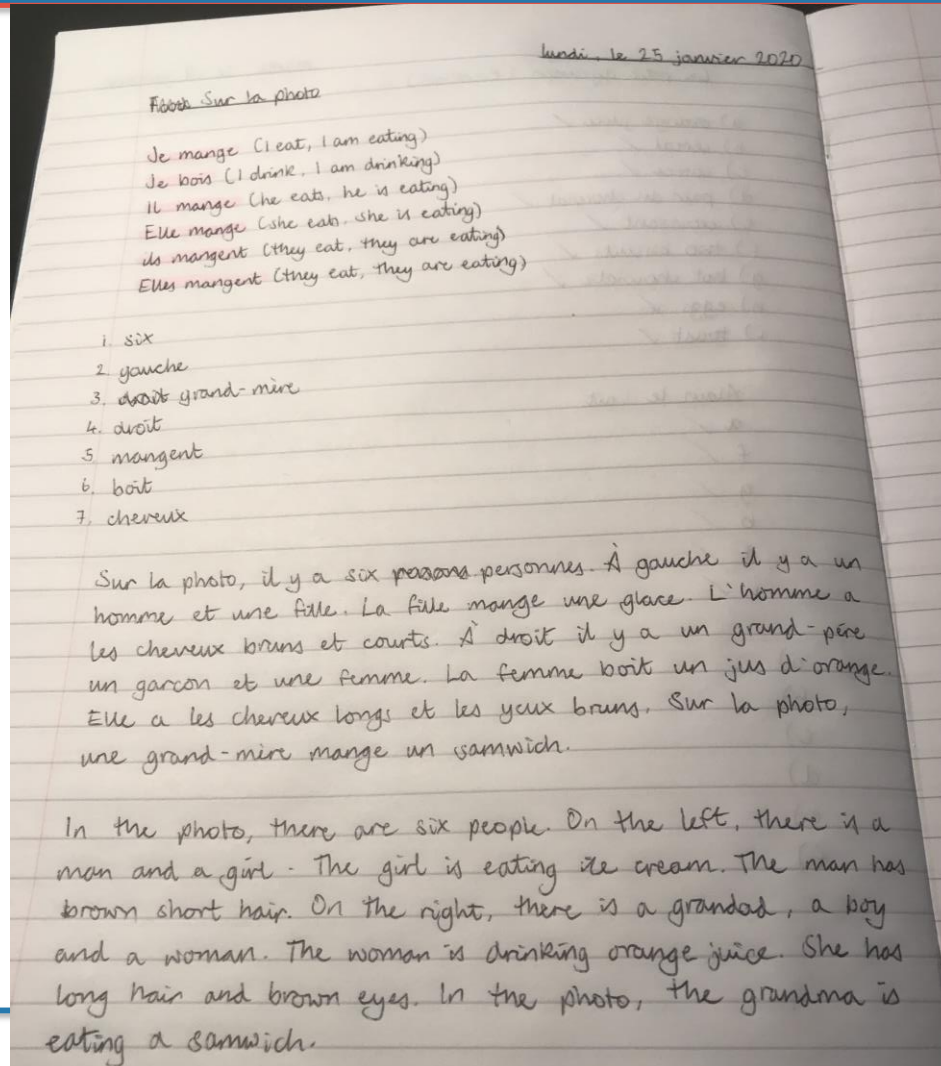 lundi, le 25 janvier 2020
Sur la photo
Je mange (I eat, I am eating)
Je bois (I drink, I am drinking)
Il mange (he eats, he is eating)
Elle mange (she eats, she is eating)
ils mangent (they eat, they are eating)
Elles mangent (they eat, they are eating)
1. six
2. gauche
3. droit grand-mère
4. droit
5. mangent
6. boit
7. cheveux
Sur la photo, il y a six personnes. À gauche il y a un
homme et une fille. La fille mange une glace. L'homme a
les cheveux bruns et courts. À droit il y a un grand-père
un garcon et une femme. La femme boit un jus d'orange.
Elle a les cheveux longs et les yeux bruns. Sur la photo,
une grand-mère mange un samwich.
In the photo, there are six people. On the left, there is a
man and a girl. The girl is eating ice cream. The man has
brown short hair. On the right, there is a grandad, a boy
and a woman. The woman is drinking orange juice. She has
long hair and brown eyes. In the photo, the grandma is
eating a samwich.